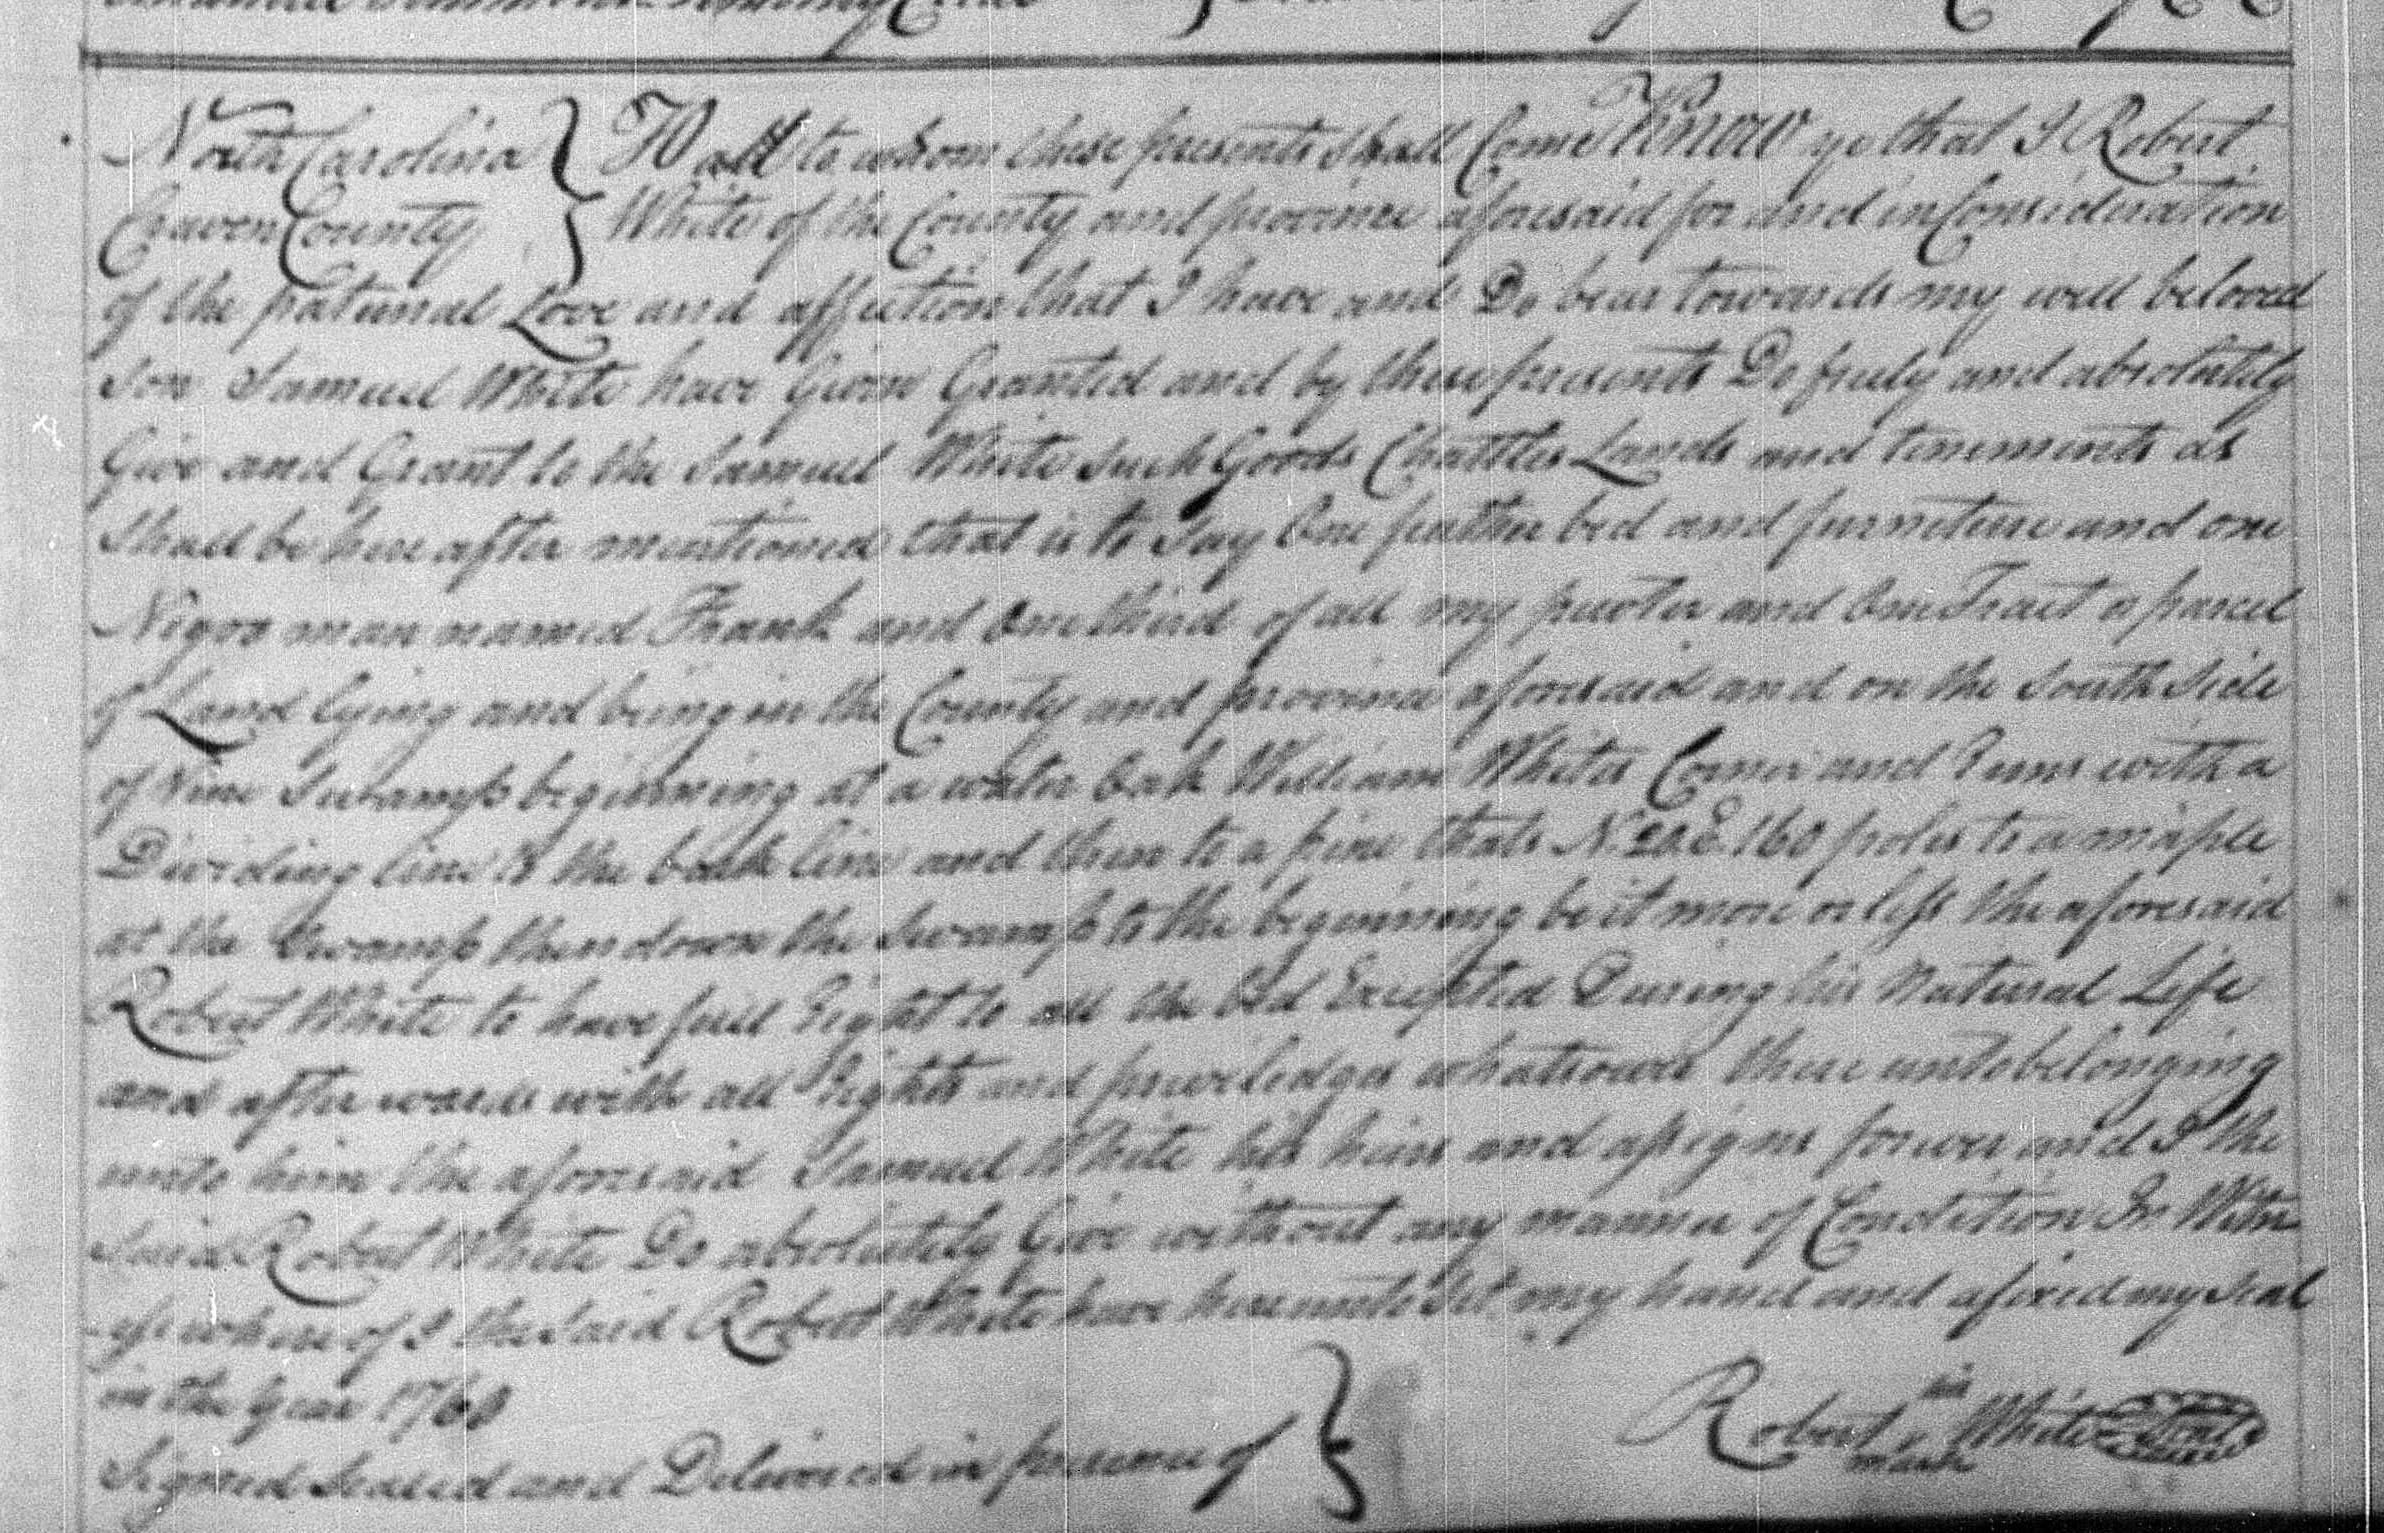 North Carolina } To all to whom these presents shall Come Know ye that I Robert
Craven County } White of the County and province aforesaid for and in Consideration
of the paternal Love and affection that I have and Do bear towards my well beloved
son Samuel White have Given Granted and by these presents Do freely and absolutely
Give and Grant to the Samuel White such Goods Chattles Lands and tenements as
shall be here after mentioned that is to say One feather bed and furniture and one
Negro man named Frank and One third of all my pewter and One Tract or parcel
of Land lying and being in the County and province aforesaid and on the South side
of Swamp beginning at a water Oak William Whites Corner and Runs with a
Dividing line to the back line and then to a pine thats N. 20. E. 160 poles to a maple
at the Swamp then down the Swamp to the beginning be it more or less the aforesaid
Robert White to have full Right to all the bed Excepted During his Natural Life
and after wards with all Rights and priviledges whatsoever there unto belonging
unto him the aforesaid Samuel White his heirs and assigns forever and I the
said Robert White Do absolutely Give without any manner of Condition In Witn
-ess where of I the said Robert White have hereunto set my hand and afixed my seal
in the year 1760
his
Robert White Seal
mark
Signed Sealed and Delivered in presence of }